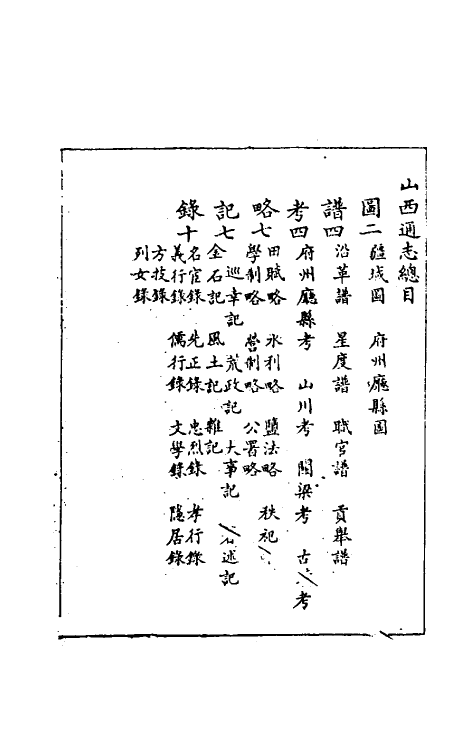 山西通志總目
圖二 疆域圖 府州廳縣圖
譜四 沿革譜 星度譜 職官譜 貢舉譜
考四 府州廳縣考 山川考 關梁考 古 考
略七 田賦略 水利略 鹽法略 秩祀
學制略 營制略 公署略
記七 巡幸記 荒政記 大事記 述記
金石記 風土記 雜記
錄十 名宦錄 先正錄 忠烈錄 孝行錄
義行錄 儒行錄 文學錄 隱居錄
方技錄
列女錄